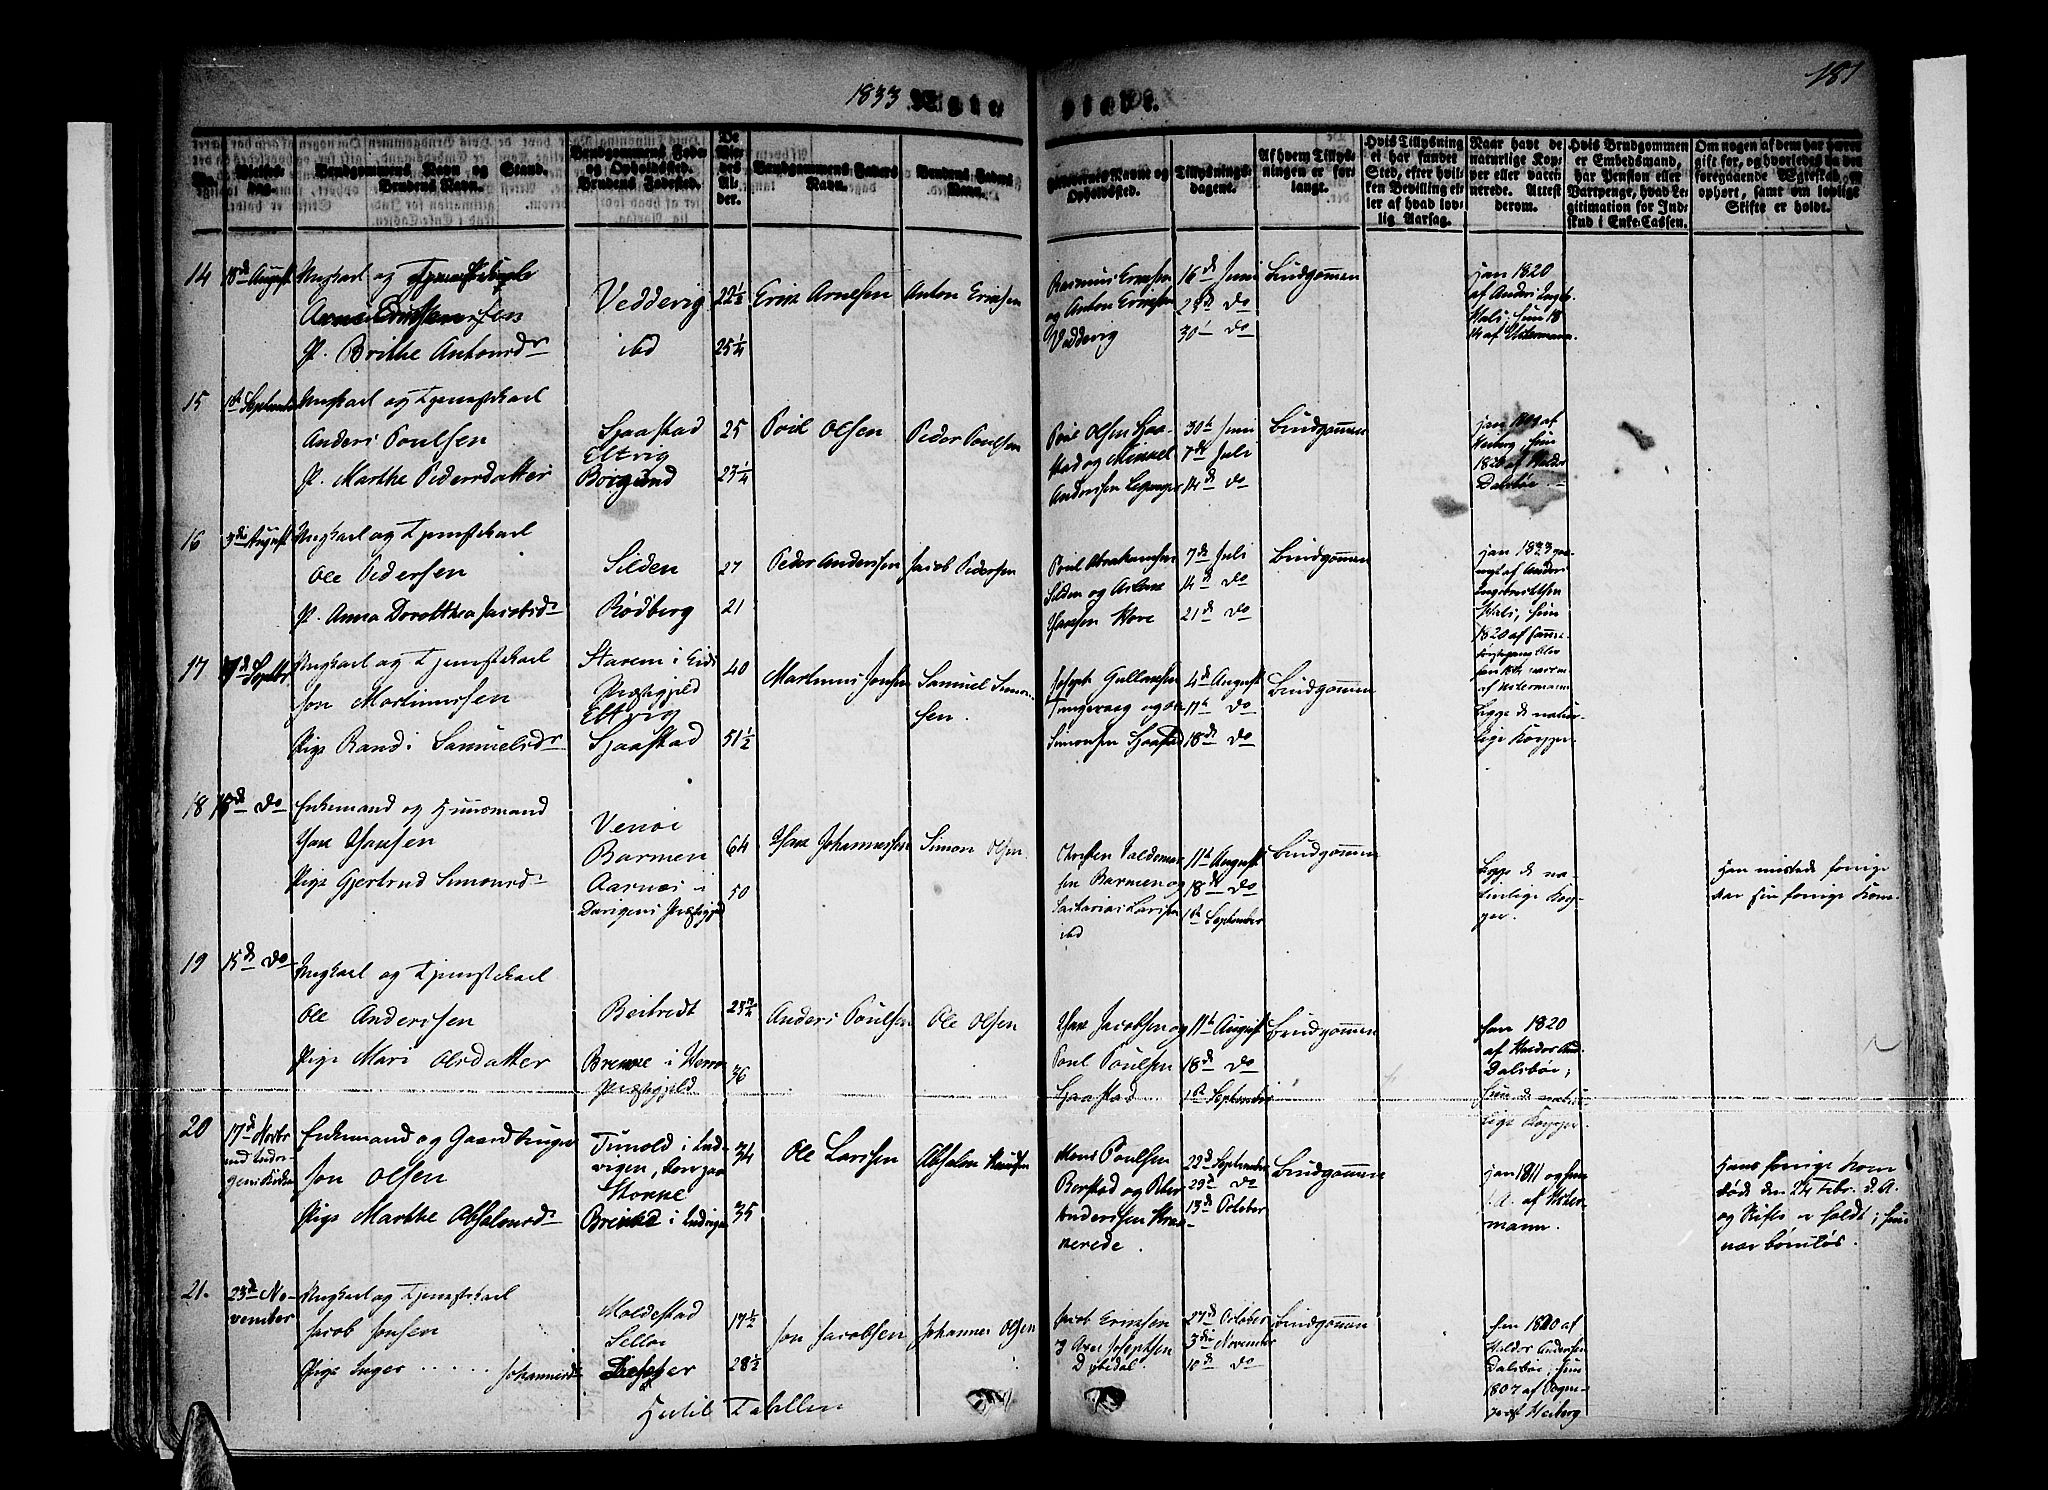 1833 Ægte
viede.
181
No.
Vielses-
dag.
Brudgommens Navn og Stand.
Brudens Navn.
Brudgommens Føde-
og Opholdssted.
Brudens Fødested.
De
Vie-
des
Al-
der.
Brudgommens Faders
Navn.
Brudens Faders
Navn.
Forlovernes Navne og
Opholdssted.
Tillysnings-
dagene.
Af hvem Tillys-
ningen er for-
langt.
Hvis Tillysning
ei har fundet
Sted, efter hvil-
ken Bevilling el-
ler af hvad lov-
lig Aarsag.
Naar have de
naturlige Kop-
per eller vacci-
nerede. Attest
derom.
Hvis Brudgommen
er Embedsmand,
har Pension eller
Vartpenge, hvad Le-
gitimation for Ind-
skud i Enke-Cassen.
Om nogen af dem har været
gift før, og hvorledes da det
foregaaende Ægteskab er
ophørt, samt om lovlige
Skifte er holdt.
14
18de August
Ungkarl og
P. Brithe Antonsdr
Veddevig
ibd
22 1/2
25 1/4
Erik Arnesen
Anton Ericksen
Rasmus Ericksen
og Anton Ericksen
Veddevig
16de Juni
23de do
30te do
Brudgommen
han 1820
af Anders Ingb.
Hals; hun 18
14 af Astermann.
15
1ste September
Ungkarl og Tjenestekarl
Anders Poulsen
P. Marthe Pedersdatter
Sjaastad
Eltvig
Borgund
25
23 1/4
Poul Olsen
Peder Poulsen
Poul Olsen Sjaa-
stad og Mikael
Anderssen Leganger
30te Juni
7de Juli
14de do
Brudgommen
han af
Heiberg, hun
1820 af Haldor
Dalsbøe.
16
3die August
Ungkarl og Tjenestekarl
Ole Pedersen
P. Anna Dorothea Jacobsdr
Silden
Rødberg
27
21
Peder Anderssen
Jacob Pedersen
Poul Abrahamsen
Silden og
Hansen Hove
7de Juli
14de do
21de do
Brudgommen
han 1833
af Anders
Ingebrichtsen
Hals, hun
1820 af samme.
17
7de Septbr
Ungkarl og Tjenestekarl
Jon Martinussen
Pige Randi Samuelsdr
Starem i Eids
Præstegjeld
Eltvig
Sjaastad
40
51 1/2
Martinus Jonsen
Samuel Simon-
sen.
Joseph Gullaksen
Tungevaag og
Simonsen Sjaastad
4de August
11te do
18de do
Brudgommen
af Astermann
Begge de natur-
lige Kopper.
18
15de do
Enkemand og Huusmand
Hans Hansen
Pige Gjertrud Simonsdr
Venøi
Barmen
Aarnæs i
Davigens Præstegjeld
64
50
Hans Johannessen
Simon Olsen
Christen Valdemar-
sen Barmen og
Zacharias Larsen
ibd
11te August
18de do
1ste September
Brudgommen
Begge de na-
turlige Kop-
per.
Han mistede forrige
Aar sin forrige Kone.
19
15de do
Ungkarl og Tjenestekarl
Ole Anderssen
Pige Mari Olsdatter
Beitvedt
Brekke i Horn.
Præstegjeld
23 3/4
36
Anders Poulsen
Ole Olsen
Hans Jacobsen og
Poul Poulsen
Sjaastad
11te August
18de do
1ste September
Brudgommen
han 1820
af Haldor And.
Dalsbøe;
hun de natur-
lige Kopper.
20
17de Novbr
Enkemand og Gaardbruger
Jon Olsen
Pige Marthe Absalonsdr
34
35
Ole Larssen
Absalon Knudsen
Mons Poulsen
Berstad og Peder
Anderssen
nerede.
22de September
29de do
13de October
Brudgommen
han 1811 og hun
af Aster-
mann.
Hans forrige Kone
døde den 24 Febr. d. A.
og Skifte er holdt; hun
var børnløs.
21.
23de No-
vember
Ungkarl og Tjenestekarl
Jacob Jonsen
Pige Inger . . . . . Johannesdr
Moldestad
17 1/2
28 1/2
Jon Jacobsen
Johannes Olsen
Jacob Ericksen
Josephsen
Dybedal
27de October
3die November
10de do
Brudgommen
han 1820 af
Haldor Andersen
Dalsbøe; hun
1807 af Sogne-
præst Heiberg
Hertil Tabellen